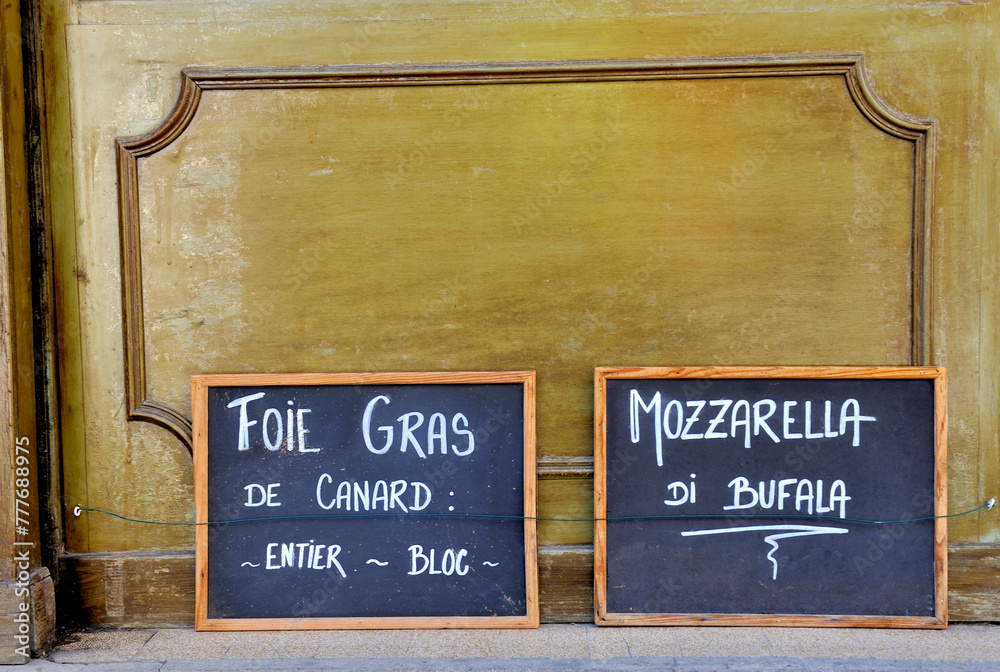 FOIE GRAS
DE CANARD :
~ ENTIER ~ BLOC ~
MOZZARELLA
DI BUFALA
Adobe Stock | #777688975